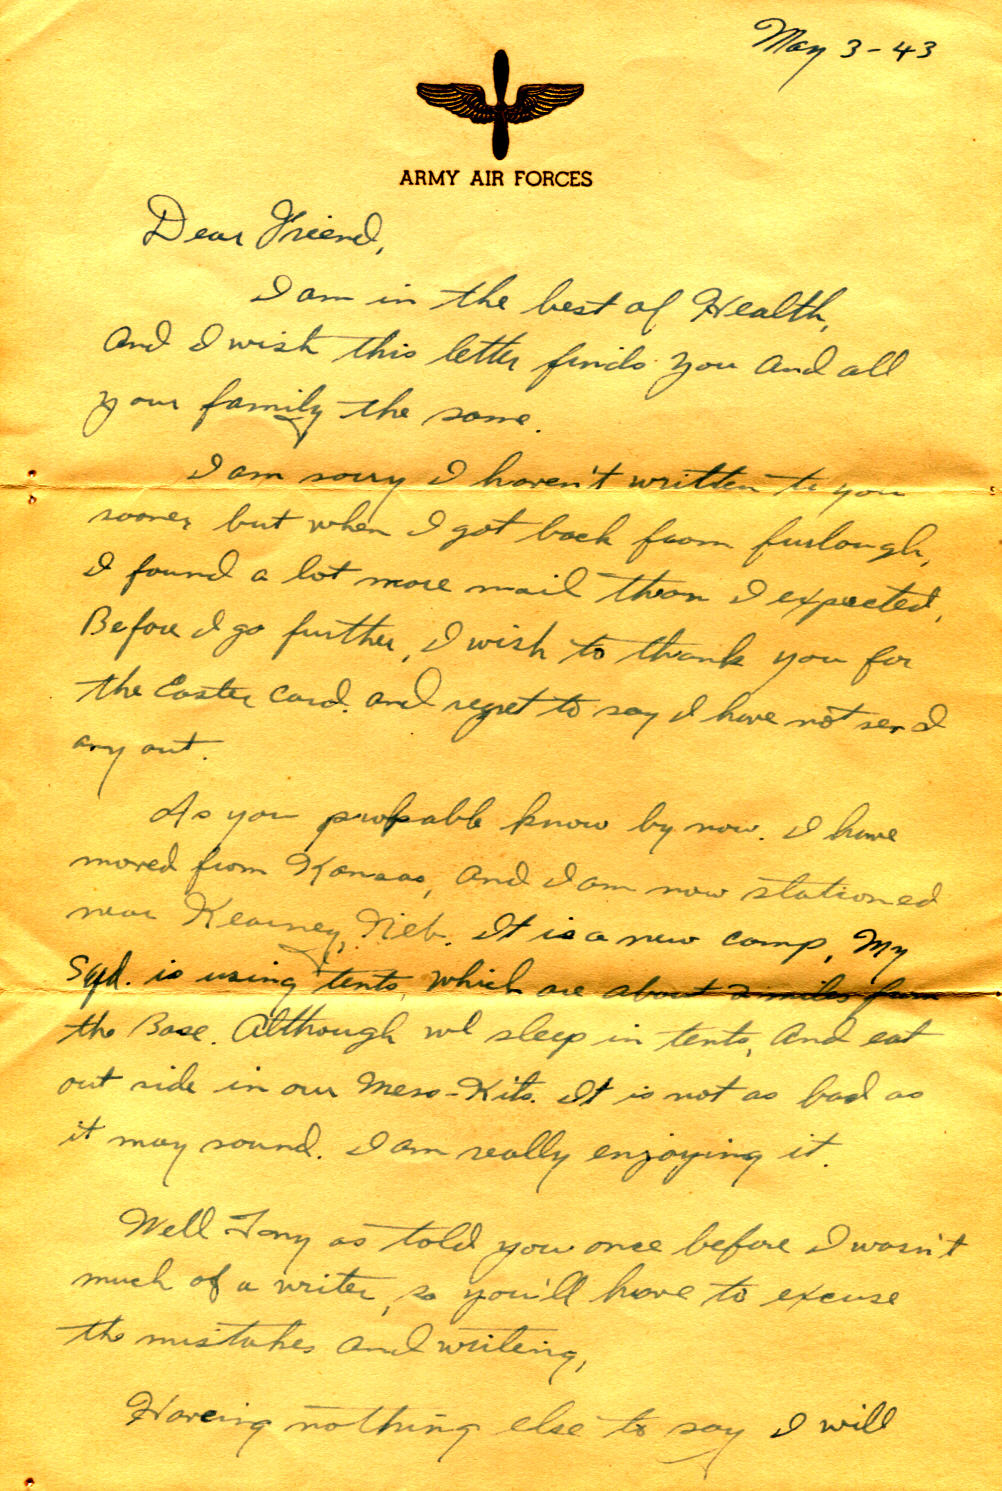 May 3-43
ARMY AIR FORCES
Dear Friend,
I am in the best of Health,
and I wish this letter finds you and all
your family the same.
I am sorry I haven't written to you
sooner but when I got back from furlough,
I found a lot more mail than I expected,
Before I go further, I wish to thank you for
the Easter card. and regret to say I have not send
any out.
As you probable know by now. I have
moved from Kansas, and I am now stationed
near Kearney, Neb. It is a new camp, My
Sqd. is using tents, which are about 2 miles from
the Base. Although we sleep in tents, and eat
out side in our Mess-Kits. It is not as bad as
it may sound. I am really enjoying it.
Well Tony as told you once before I wasn't
much of a writer, so you'll have to excuse
the mistakes and writing,
Haveing nothing else to say I will